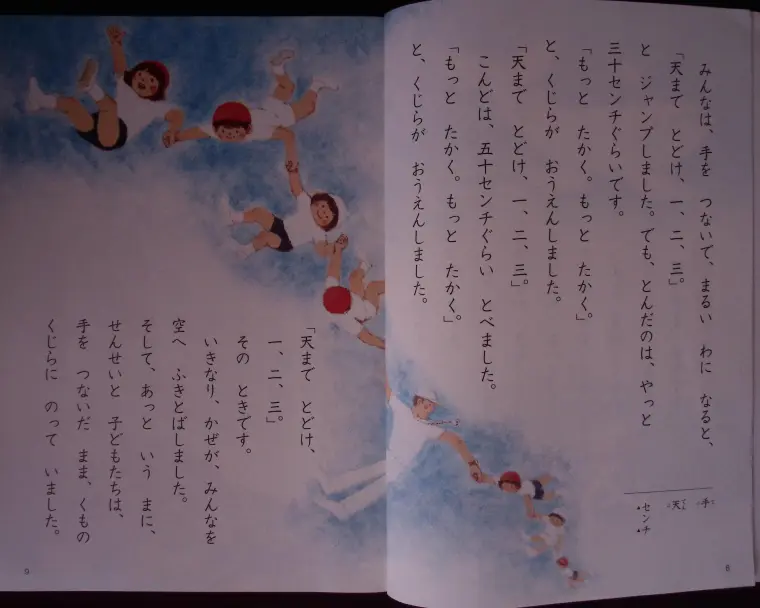 みんなは、手を つないで、まるい わに なると、
「天まで とどけ、一、二、三。」
と ジャンプしました。でも、とんだのは、やっと
三十センチぐらいです。
「もっと たかく。もっと たかく。」
と、くじらが おうえんしました。
「天まで とどけ、一、二、三。」
こんどは、五十センチぐらい とべました。
「もっと たかく。もっと たかく。」
と、くじらが おうえんしました。
手
天
センチ
8
「天まで とどけ、
一、二、三。」
その ときです。
いきなり、かぜが、みんなを
空へ ふきとばしました。
そして、あっと いう まに、
せんせいと 子どもたちは、
手を つないだ まま、くもの
くじらに のって いました。
9